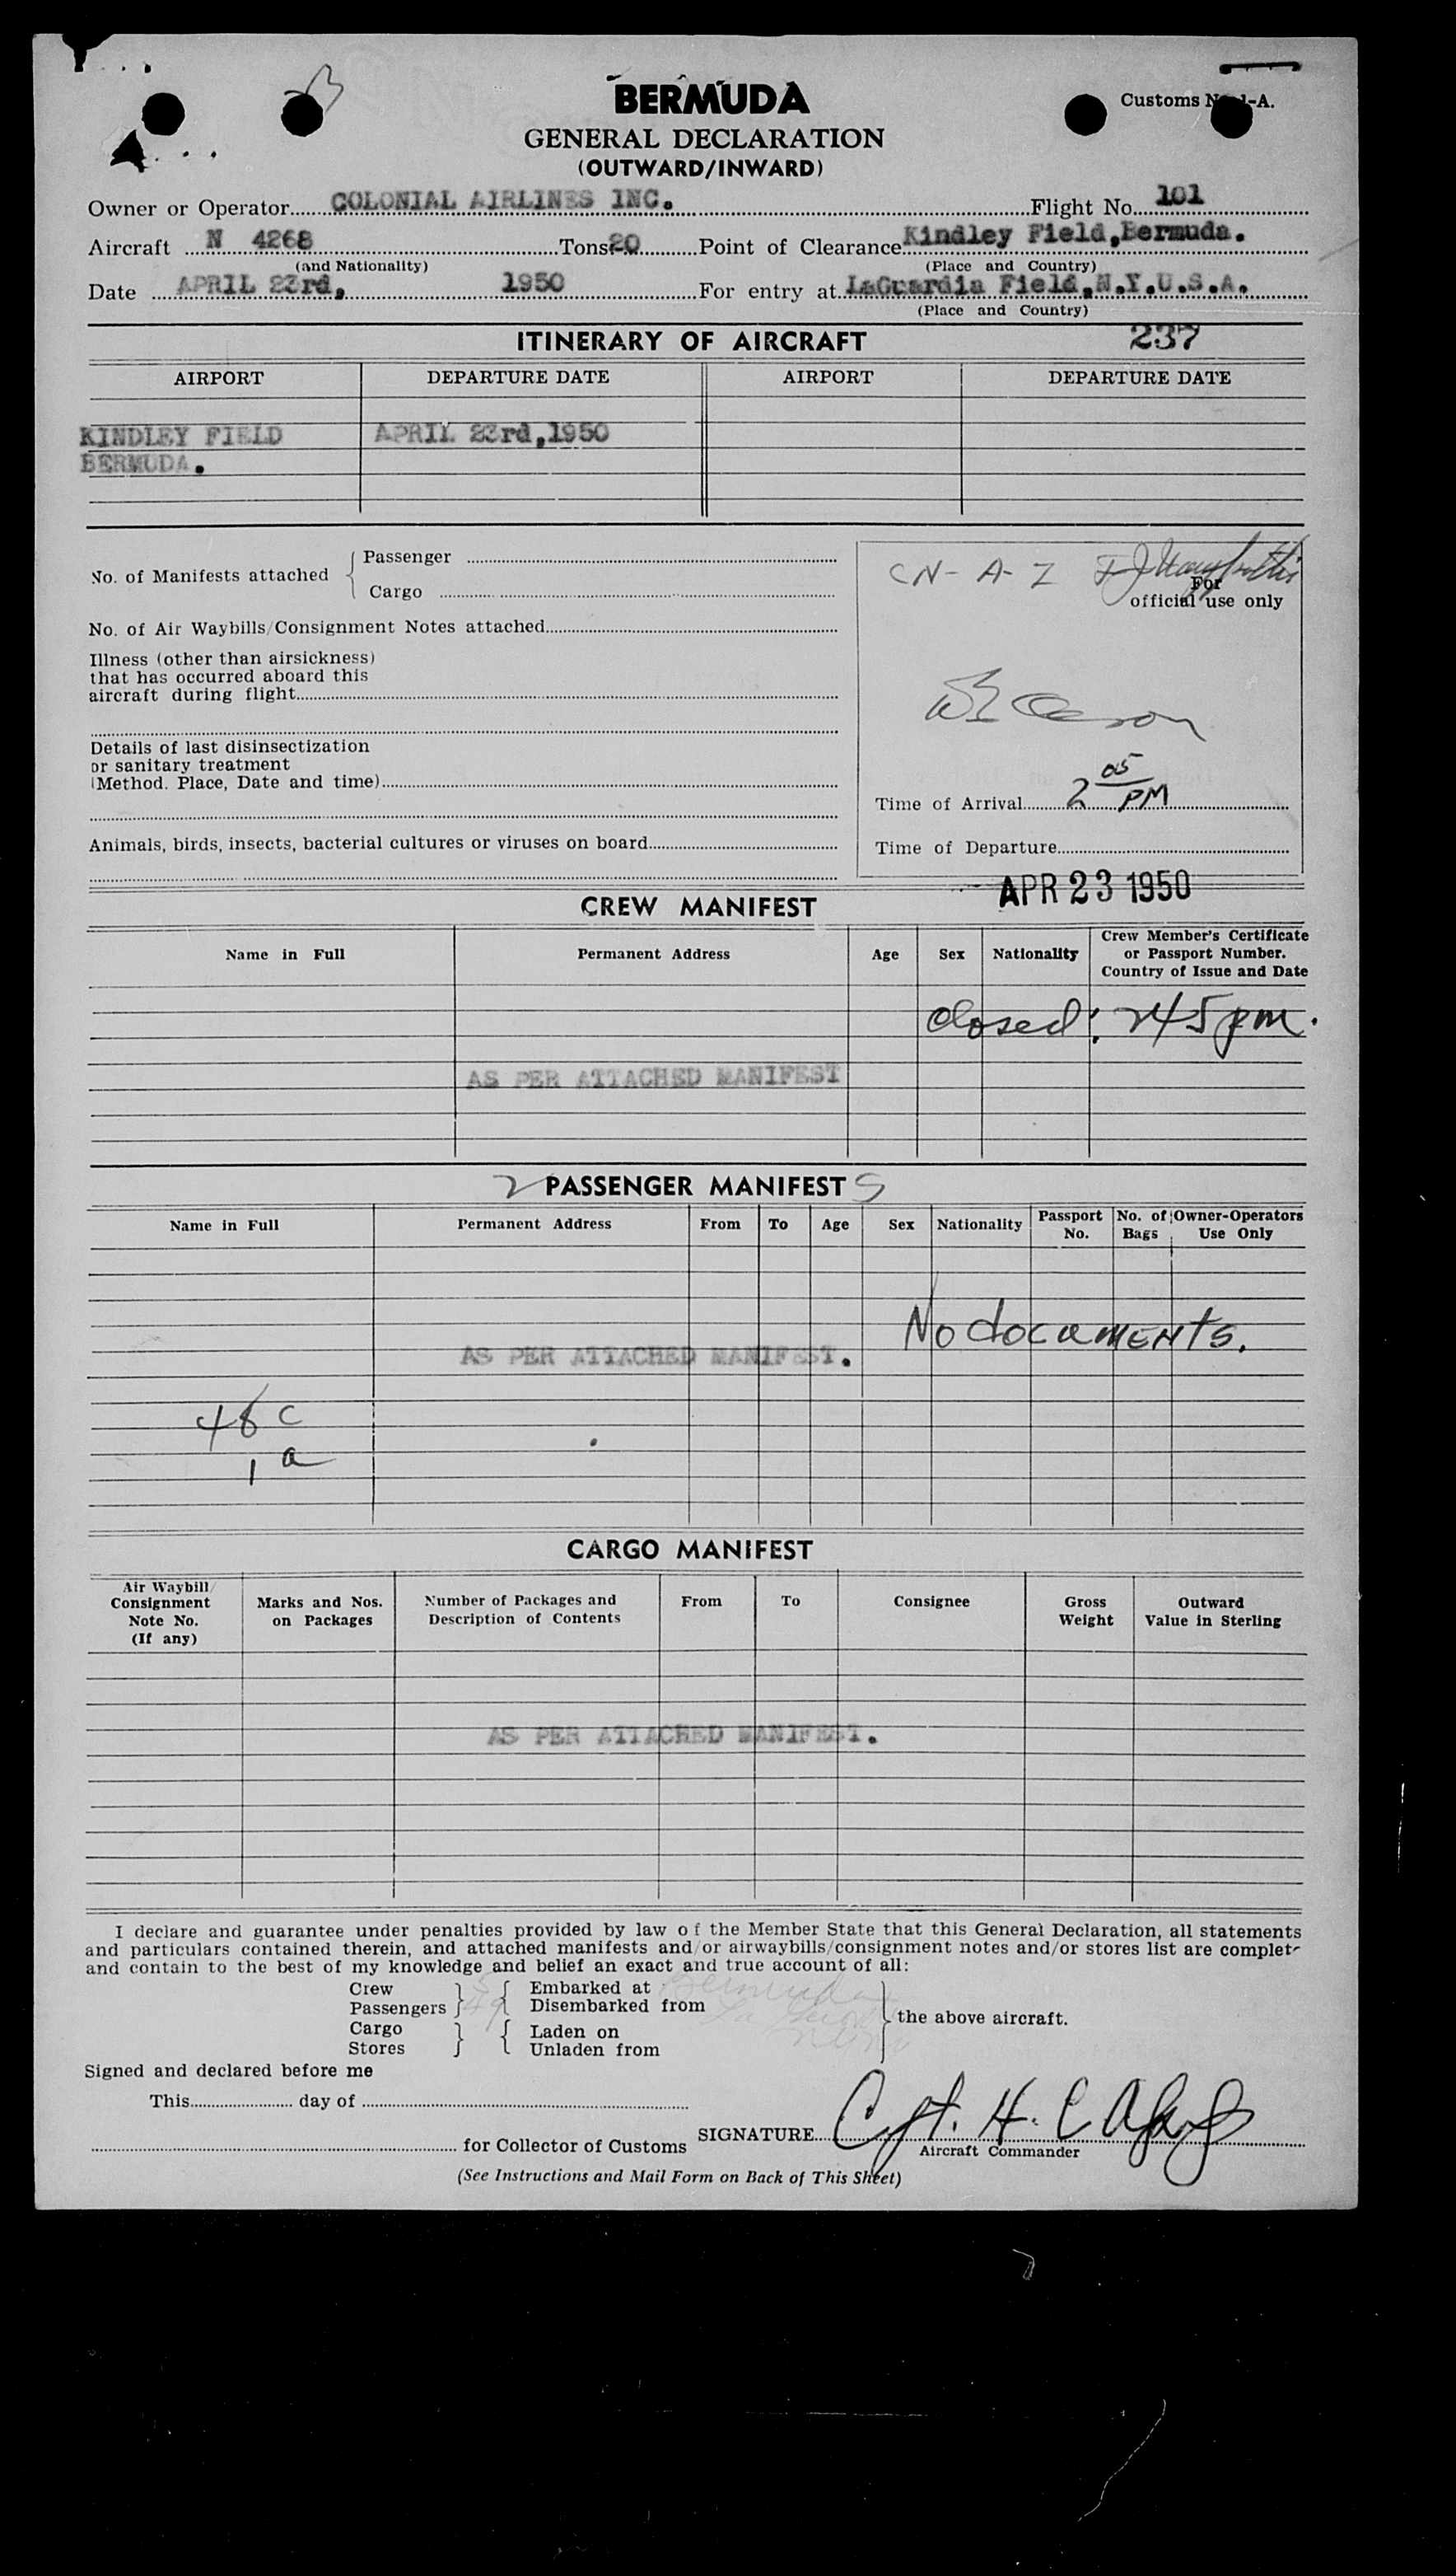 BERMUDA
Customs N 1-A.
GENERAL DECLARATION
(OUTWARD/INWARD)
Owner or Operator COLONIAL AIRLINES INC. Flight No. 101
Aircraft N 4268 Tons 20 Point of Clearance Kindley Field,Bermuda.
(and Nationality) (Place and Country)
Date APRIL 23rd, 1950 For entry at LaGuardia Field,N.Y.U.S.A.
(Place and Country)
ITINERARY OF AIRCRAFT 237
AIRPORT DEPARTURE DATE AIRPORT DEPARTURE DATE
KINDLEY FIELD APRIL 23rd,1950
BERMUDA.
No. of Manifests attached
Passenger
Cargo
CN-A-Z
For
official use only
No. of Air Waybills/Consignment Notes attached
Illness (other than airsickness)
that has occurred aboard this
aircraft during flight
Details of last disinsectization
or sanitary treatment
(Method. Place, Date and time)
Time of Arrival 2 05 PM
Animals, birds, insects, bacterial cultures or viruses on board
Time of Departure
APR 23 1950
CREW MANIFEST
Name in Full Permanent Address Age Sex Nationality Crew Member's Certificate
or Passport Number.
Country of Issue and Date
Closed: 245 pm.
AS PER ATTACHED MANIFEST
2 PASSENGER MANIFEST S
Name in Full Permanent Address From To Age Sex Nationality Passport No. No. of Bags Owner-Operators Use Only
No documents.
AS PER ATTACHED MANIFEST.
48 c
1 a
CARGO MANIFEST
Air Waybill/
Consignment
Note No.
(If any)
Marks and Nos.
on Packages
Number of Packages and
Description of Contents
From To Consignee
Gross
Weight
Outward
Value in Sterling
AS PER ATTACHED MANIFEST.
I declare and guarantee under penalties provided by law of the Member State that this General Declaration, all statements
and particulars contained therein, and attached manifests and/or airwaybills/consignment notes and/or stores list are complete
and contain to the best of my knowledge and belief an exact and true account of all:
Crew 5 Embarked at Bermuda
Passengers 49 Disembarked from
the above aircraft.
Cargo Laden on
Stores Unladen from
Signed and declared before me
This day of
SIGNATURE Cpt. H. C
for Collector of Customs
Aircraft Commander
(See Instructions and Mail Form on Back of This Sheet)